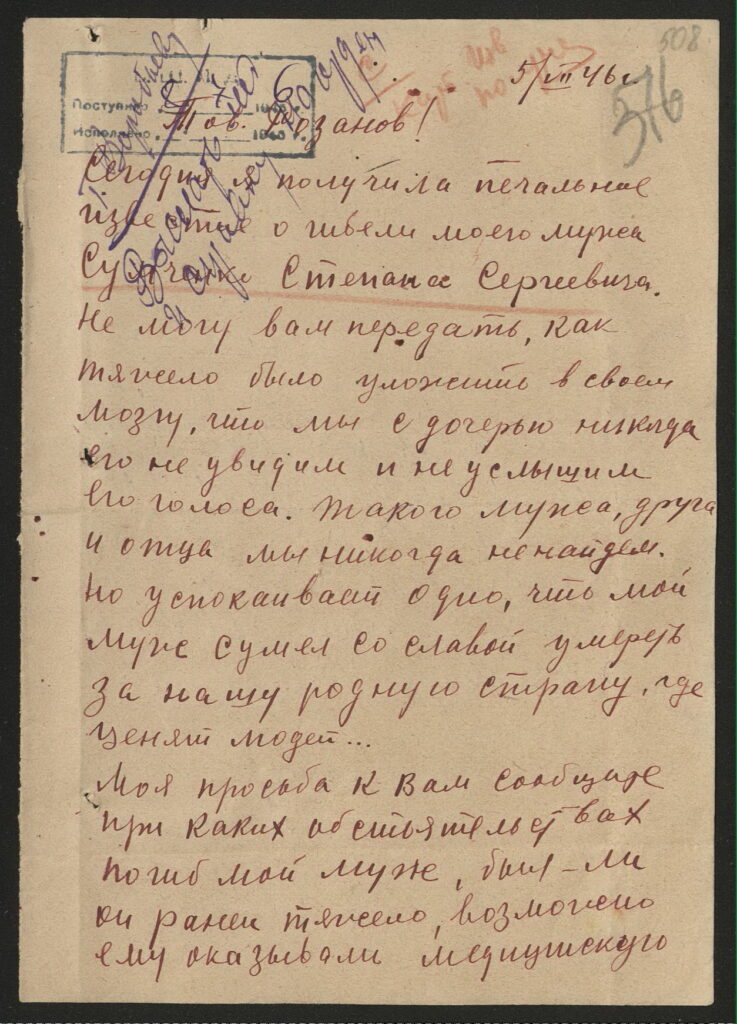 508
576
5/III 46г
Поступило 8 7 6 194
Исполнено 194
Тов. Розанов!
Сегодня я получила печальное
известие о гибели моего мужа
Степана Сергеевича.
Не могу вам передать, как
тяжело было уложить в своем
мозгу, что мы с дочерью никогда
его не увидим и не услышим
его голоса. Такого мужа, друга
и отца мы никогда не найдем.
Но успокаивает одно, что мой
муж сумел со славой умереть
за нашу родную страну, где
ценят людей...
Моя просьба к Вам сообщите
при каких обстоятельствах
погиб мой муж, был-ли
он ранен тяжело, возможно
ему оказывали медицинскую